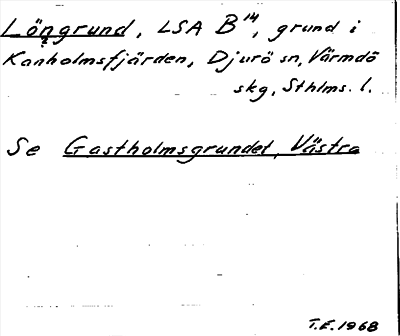 Löngrund, LSA B¹⁴, grund i
Kanholmsfjärden, Djurö sn, Värmdö
skg, Sthlms. l.
Se Gastholmsgrundet, Västra
T.E. 1968